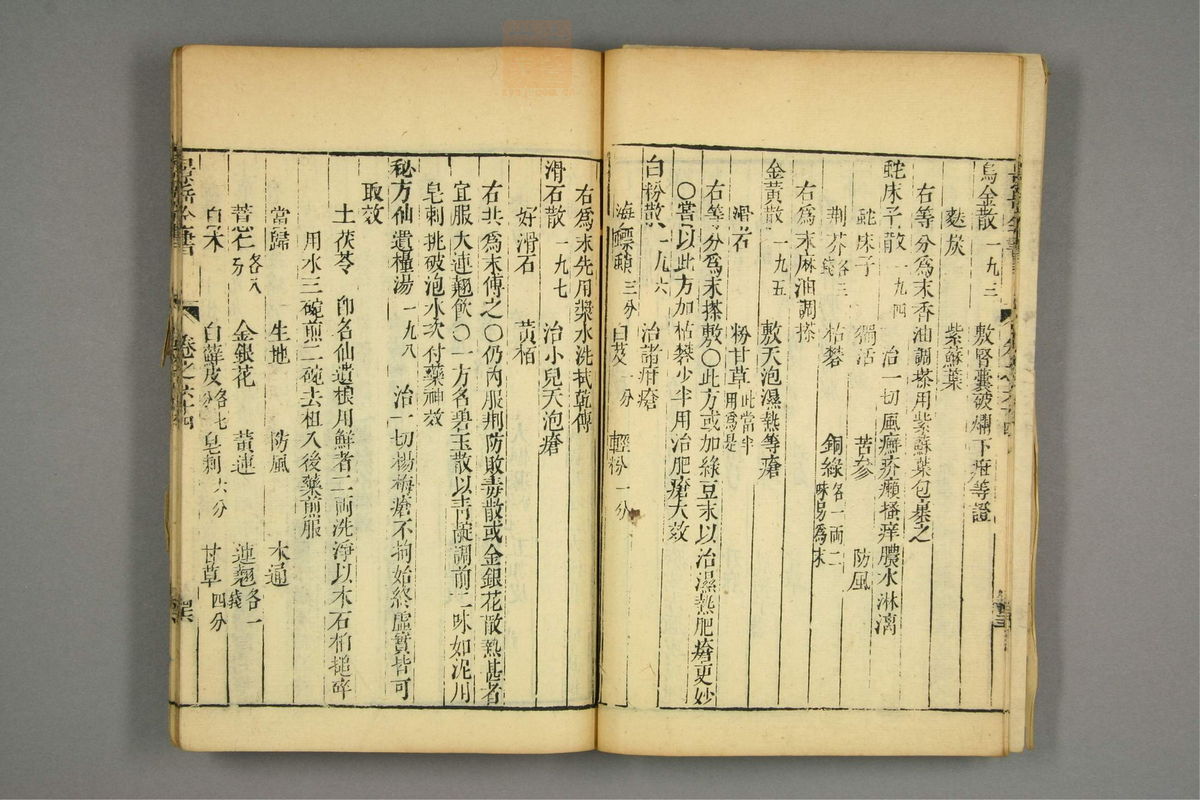 烏金散一九三　敷腎囊破爛下疳等證
麩炭　紫蘇葉
右等分爲末香油調搽用紫蘇葉包裹之
蛇床子散一九四　治一切風癬疥癩搔痒膿水淋漓
蛇床子　獨活　苦參　防風
荆芥各三錢　枯礬　銅綠各一兩二味另爲末
右爲末麻油調搽
金黃散一九五　敷天泡濕熱等瘡
滑石　粉甘草此當半用爲是
右等分爲末搽敷○此方或加綠豆末以治濕熱肥瘡更妙
○嘗以此方加枯礬少半用治肥瘡大效
白粉散一九六　治諸疳瘡
海螵蛸三分　白芨一分　輕粉一分
右爲末先用漿水洗拭乾傅
滑石散一九七　治小兒天泡瘡
好滑石　黃栢
右共爲末傅之○仍內服荆防敗毒散或金銀花散熱甚者
宜服大連翹飲○一方名碧玉散以靑靛調前二味如泥用
皂刺挑破泡水次付藥神效
秘方仙遺糧湯一九八　治一切楊梅瘡不拘始終虛實皆可
取效
土茯苓　卽名仙遺糧用鮮者二両洗淨以木石柏搥碎
用水三碗煎二碗去柤入後藥煎服
當歸　生地　防風　木通
薏仁各八分　金銀花　黃連　連翹各一錢
白木　白蘚皮各七分　皂刺六分　甘草四分
景岳全書　卷之六十四